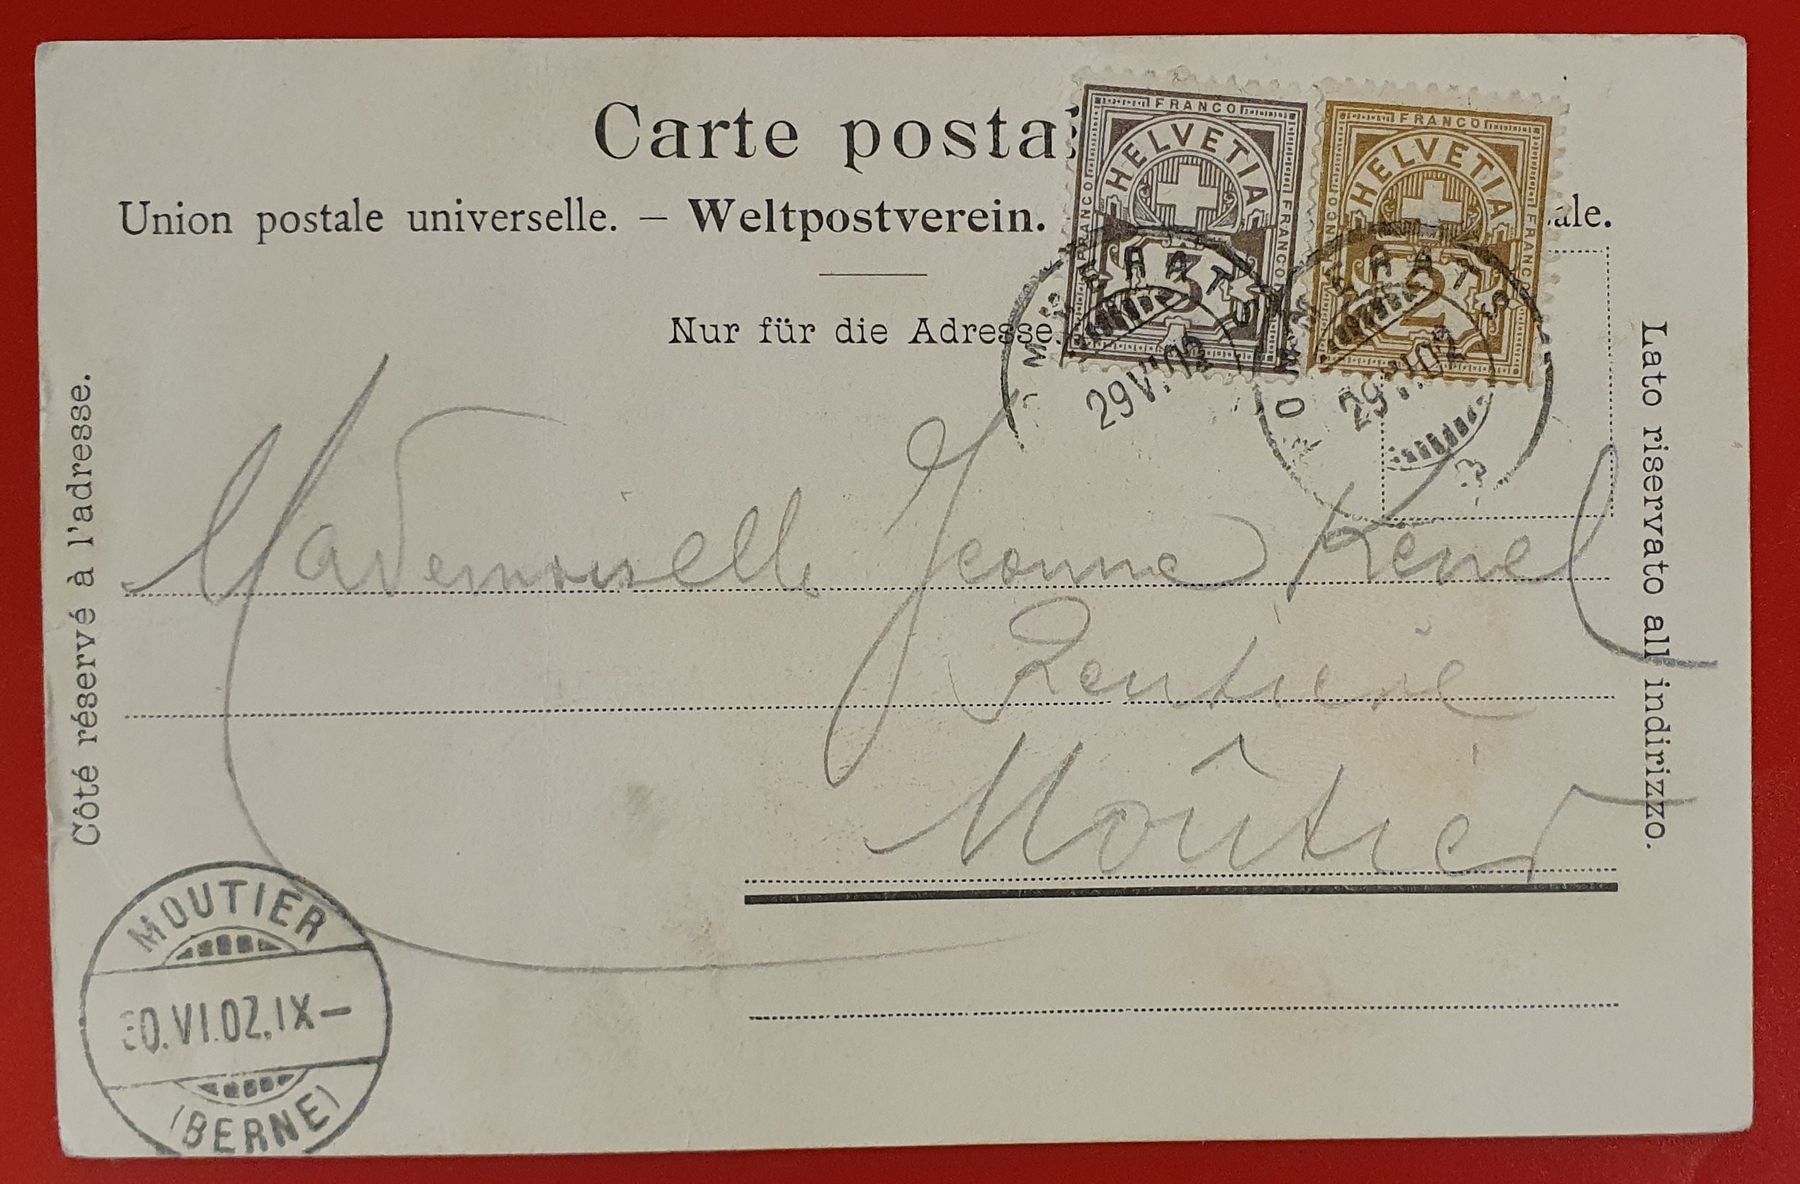 Carte posta
Union postale universelle. – Weltpostverein. ale.
Nur für die Adresse.
Côté réservé à l'adresse.
Lato riservato all indirizzo.
FRANCO
HELVETIA
FRANCO
FRANCO
3
FRANCO
HELVETIA
FRANCO
FRANCO
2
29 VI 02
29 VI 02
Mademoiselle Jeanne Kenel
Rentière
Moûtier
MOUTIER
30.VI.02.IX–
(BERNE)